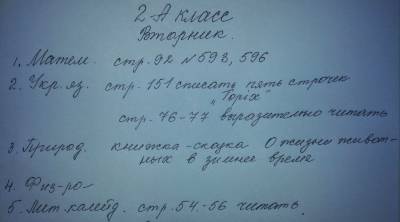 2-А класс
Вторник.
1. Матем. стр. 92 № 593, 596
2. Укр. яз. стр. 151 списать пять строчек
"Торіх"
стр. 76-77 выразительно читать
3. Природ. книжка-сказка О жизни живот-
ных в зимнее время
4. Физ-ра-
5. Лит. калейд. стр. 54-56 читать.